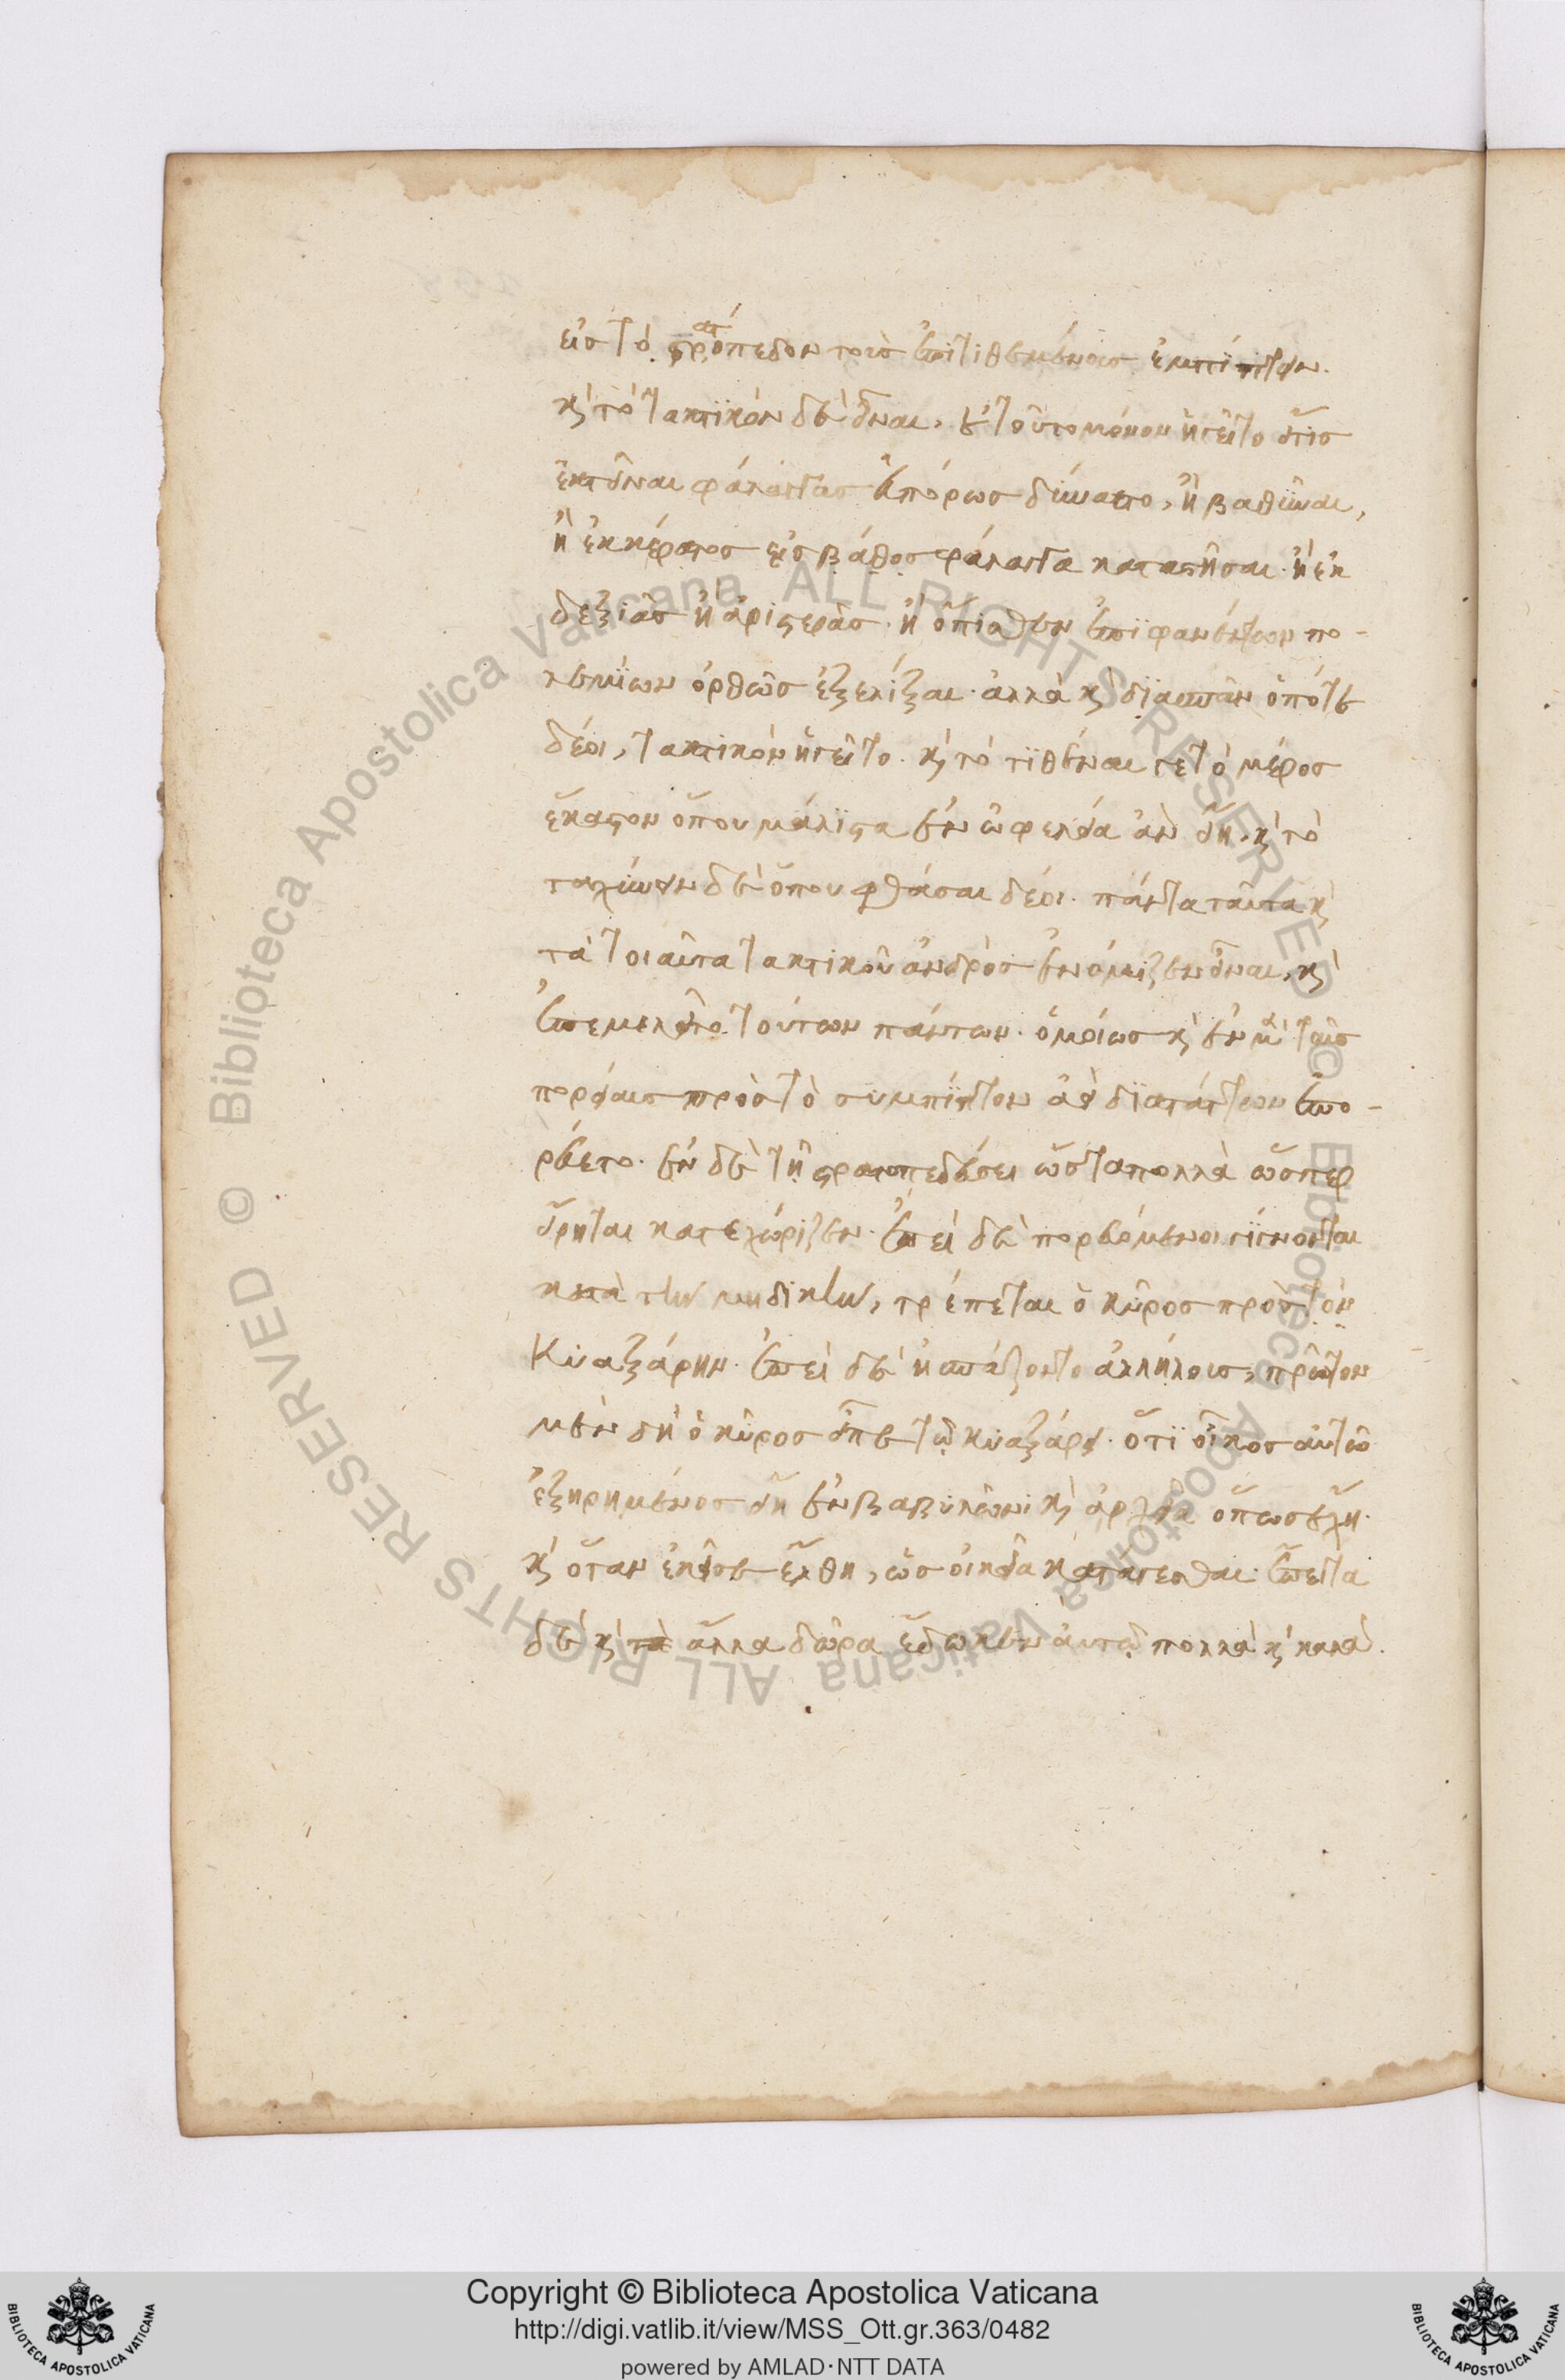 εἰσ τὸ στρατόπεδον τοῖσ ἐπιτιθεμένοισ ἐμπίπτειν.
κ̀ τὸ τακτικὸν δὲ εἶναι, οὐ τοῦτο μόνον ἡγεῖτο εἴ τισ
ἐκτεῖναι φάλαγγασ εὐπόρωσ δύναιτο, ἢ βαθῦναι,
ἢ ἐκ κέρατοσ εἰσ βάθοσ φάλαγγα καταστῆσαι. ἢ ἐκ
δεξιᾶσ ἢ ἀριστερᾶσ. ἢ ὄπισθεν ἐπιφανέντων πο-
λεμίων ὀρθῶσ ἐξελίξαι. ἀλλὰ κ̀ διασπᾶν ὁπότε
δέοι, τακτικὸν ἡγεῖτο. κ̀ τὸ τιθέναι γε τὸ μέροσ
ἕκαστον ὅπου μάλιστα ἐν ὠφελεία ἂν εἴη. κ̀ τὸ
ταχύνειν δὲ ὅπου φθάσαι δέοι. πάντα ταῦτα κ̀
τὰ τοιαῦτα τακτικοῦ ἀνδρὸσ ἐνόμιζεν εἶναι, κ̀
ἐπεμελεῖτο τούτων πάντων. ὁμοίωσ κ̀ ἐν μὲν ταῖσ
πορείαισ πρὸσ τὸ συμπίπτον ἀεὶ διατάττων ἐπο-
ρεύετο. ἐν δὲ τῇ στρατοπεδεύσει ὡσ τὰ πολλὰ ὥσπερ
εἴρηται κατεχώριζεν. ἐπεὶ δὲ πορευόμενοι γίγνονται
κατὰ τὴν μηδικὴν, τρέπεται ὁ κῦροσ πρὸσ τὸν
Κυαξάρην. ἐπεὶ δὲ ἠσπάζοντο ἀλλήλουσ, πρῶτον
μὲν δὴ ὁ κῦροσ εἶπε τῷ κυαξάρει. ὅτι οἶκοσ αὐτῶ
ἐξηρημένοσ εἴη ἐν βαβυλῶνι κ̀ ἀρχεῖα ὅπωσ ἔχη.
κ̀ ὅταν ἐκεῖσε ἔλθη, ὡσ οἰκεῖα κατάγεσθαι. ἔπειτα
δὲ κ̀ τὰ ἄλλα δῶρα ἔδωκεν αὐτῷ πολλὰ κ̀ καλά.
Copyright © Biblioteca Apostolica Vaticana
http://digi.vatlib.it/view/MSS_Ott.gr.363/0482
powered by AMLAD·NTT DATA